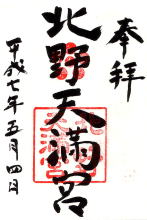 奉拝
北野天満宮
平成七年五月四日